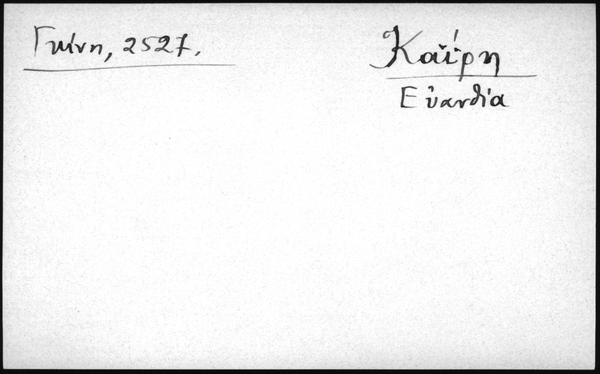 Γκίνη, 2527.
Καΐρη
Εὐανθία